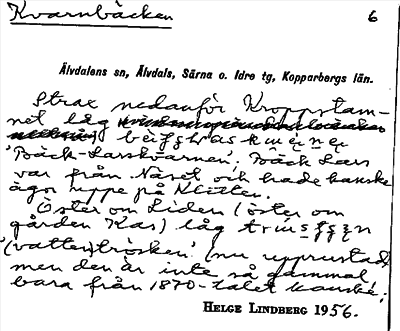 Kvarnbäcken
6
Älvdalens sn, Älvdals, Särna o. Idre tg, Kopparbergs län.
Strax nedanför Kroppstam-
net låg
'Bäck-Larskvarnen'. Bäck Lars
var från Näset och hade kanske
ägor uppe på Klitten.
Öster om Liden (öster om
gården Kas) låg
'(vatten)trösken' (nu upprustad
men den är inte så gammal,
bara från 1870-talet kanske;
HELGE LINDBERG 1956.